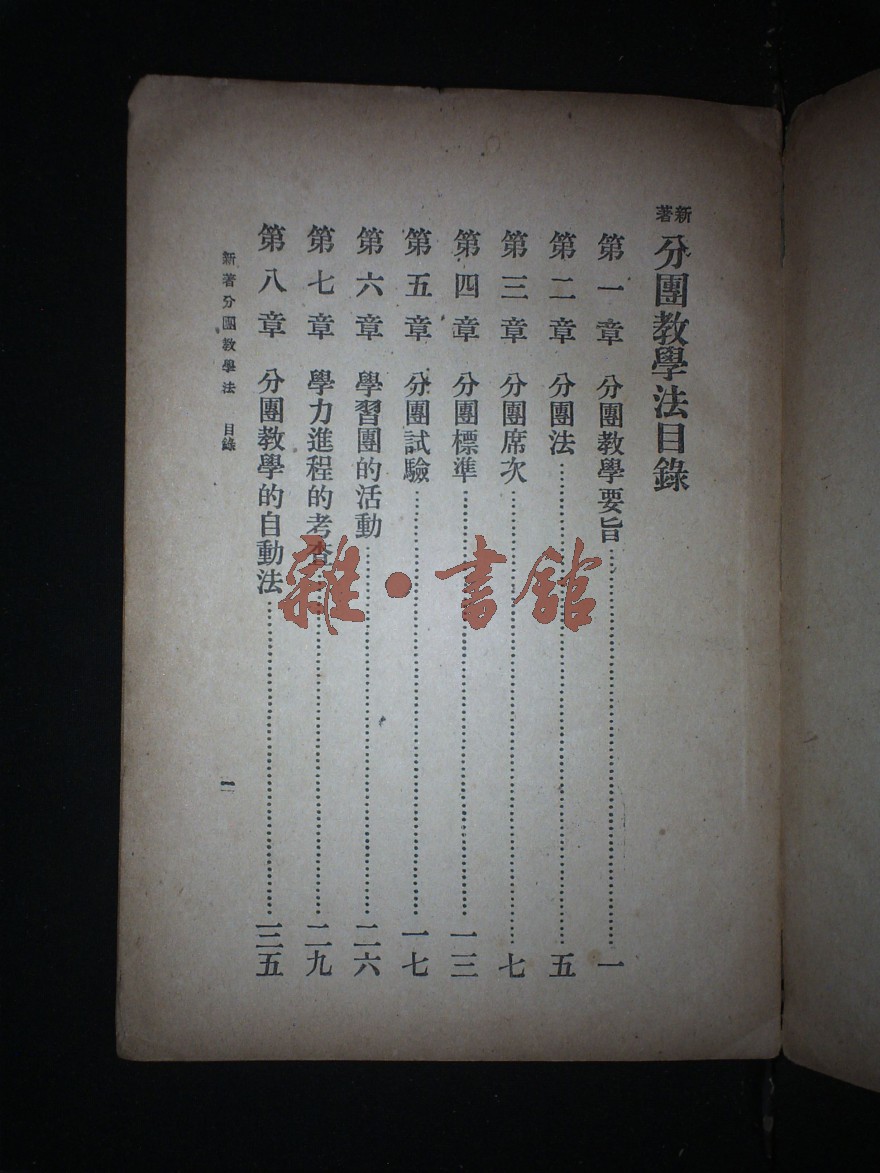 新著 分團教學法目錄
第一章 分團教學要旨……一
第二章 分團法……五
第三章 分團席次……七
第四章 分團標準……一三
第五章 分團試驗……一七
第六章 學習團的活動……二六
第七章 學力進程的考查……二九
第八章 分團教學的自動法……三五
新著分團教學法 目錄 一
雜·書館